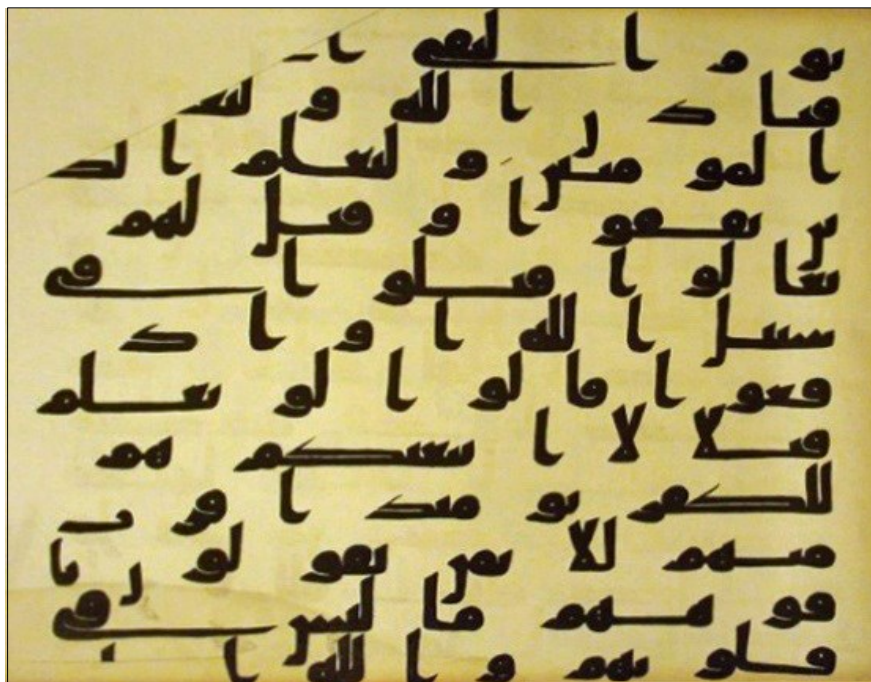 يوم التقى ا
فباذن الله وليعلم
المومنين وليعلم الذ
ين نفقوا وقيل لهم
تعالوا قتلوا في
سبيل الله او اد
فعوا قالوا لو نعلم
قتلا لا تبعنكم هم
للكفر يومئذ اقرب
منهم للايمن يقولون با
فوههم ما ليس في
قلوبهم والله ا